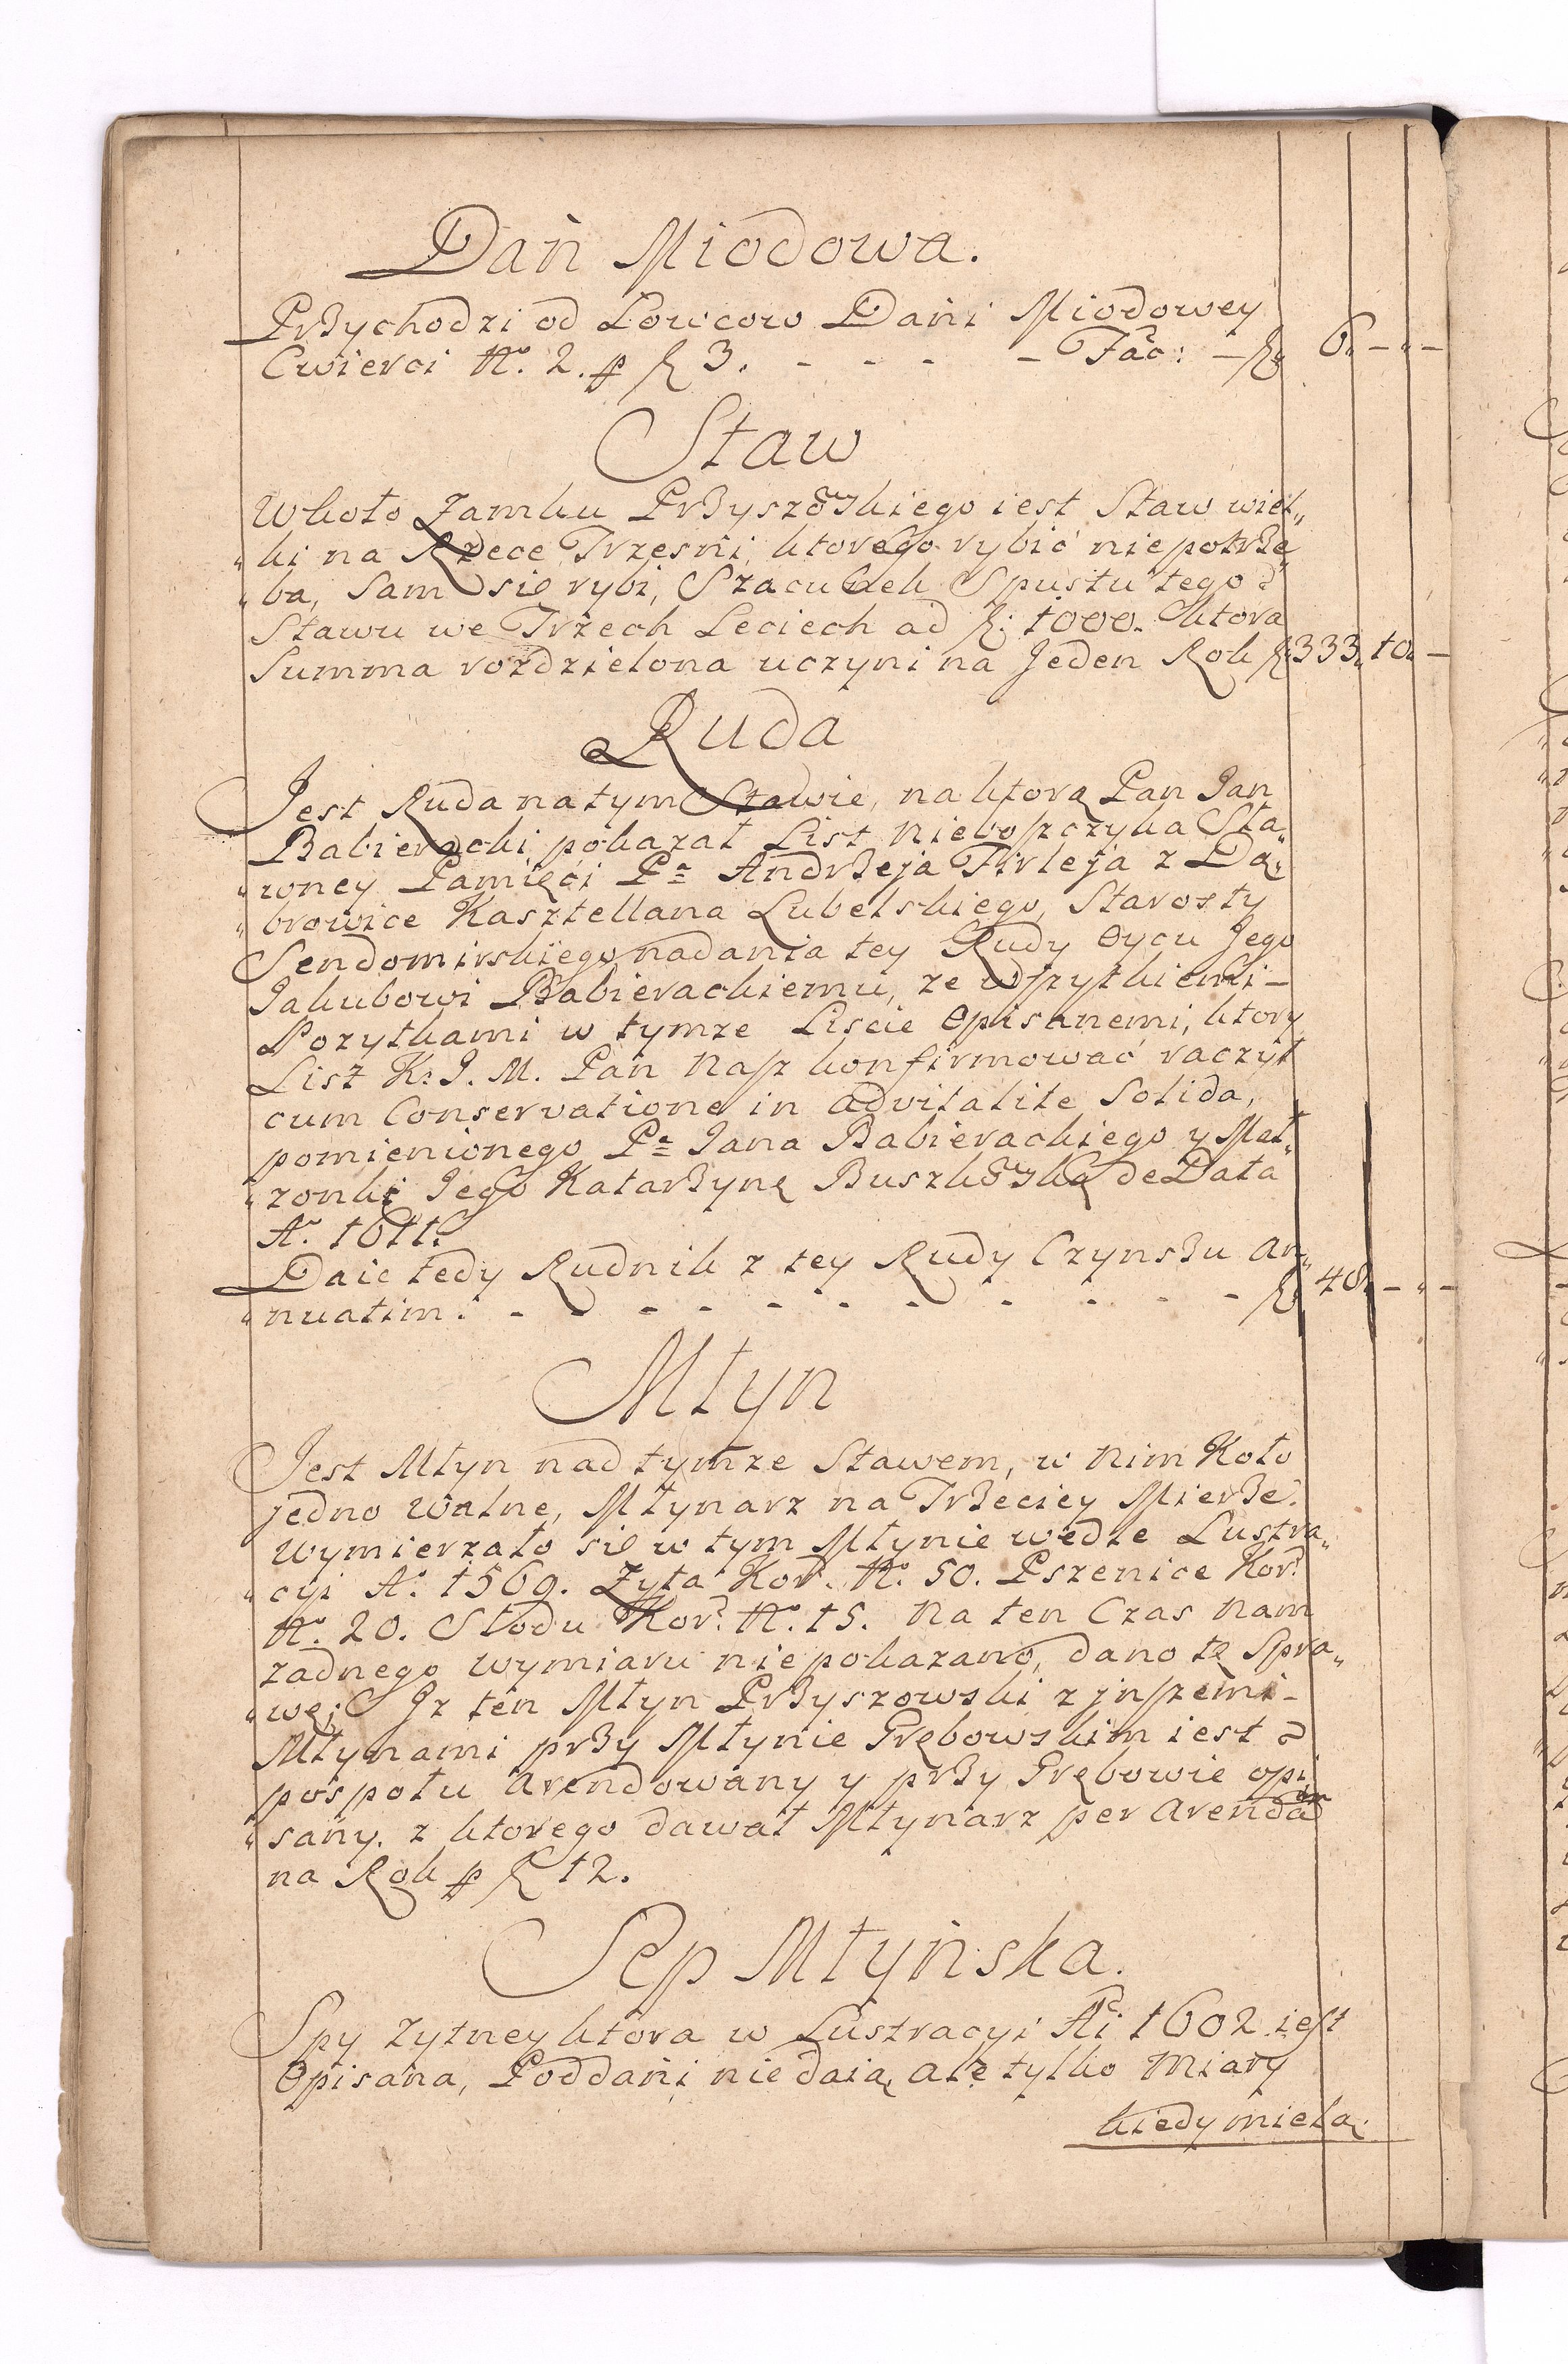 Dań Miodowa.
Przychodzi od Łowcow Dani Miodowey
Cwierci No. 2. p fl 3. - - - - Fac: - fl 6. - " -
Staw
Wkoło Zamku Przyszowskiego iest Staw wiel„
„ki na Rzece Trzesni, ktorego rybić niepotrze„
„ba, sam się rybi, Szacunek Spustu tego
Stawu we Trzech Leciech ad fl: 1000. ktora
Summa rozdzielona uczyni na Jeden Rok fl 333. 10. -
Ruda
Jest Ruda na tym Stawie, na ktorą Pan Jan
Babieracki pokazał List nieboszczyka Sła„
„wney Pamięci Pa Andrzeja Firleja z Dą„
„browice Kasztellana Lubelskiego, Starosty
Sendomirskiego nadania tey Rudy Oycu Jego
Jakubowi Babierackiemu, ze wszytkiemi
Pozytkami w tymze Liscie Opisanemi, ktory
List K. J. M. Pan Nasz konfirmować raczył
cum Conservatione in advitalite Solida,
pomienionego Pa Jana Babierackiego y Mał„
„zonkę Jego Katarzynę Buszkowską de Data
Ao. 1611.
Daie tedy Rudnik z tey Rudy Czynszu an„
„nuatim. - - - - - - - - - - fl 40. - " -
Młyn
Jest Młyn nad tymze Stawem, w nim Koło
jedno walne, Młynarz na Trzeciey Mierze.
Wymierzało się w tym Młynie wedle Lustra„
„cyi Ao. 1569. Zyta Kor. No. 50. Pszenice Kor.
No. 20. Słodu Kor. No. 15. Na ten Czas nam
zadnego wymiaru niepokazano, dano tę Spra„
„wę: Jz ten Młyn Przyszowski z jnszemi
Młynami przy Młynie Grębowskim iest
pospołu arendowany y przy Grębowie opi„
„sany. z ktorego dawał Młynarz per arendam
na Rok p fl 12.
Sep Młyńska.
Spy zytney ktora w Lustracyi Ai 1602 iest
Opisana, Poddani nie daią, ale tylko miary
kiedy mielą.